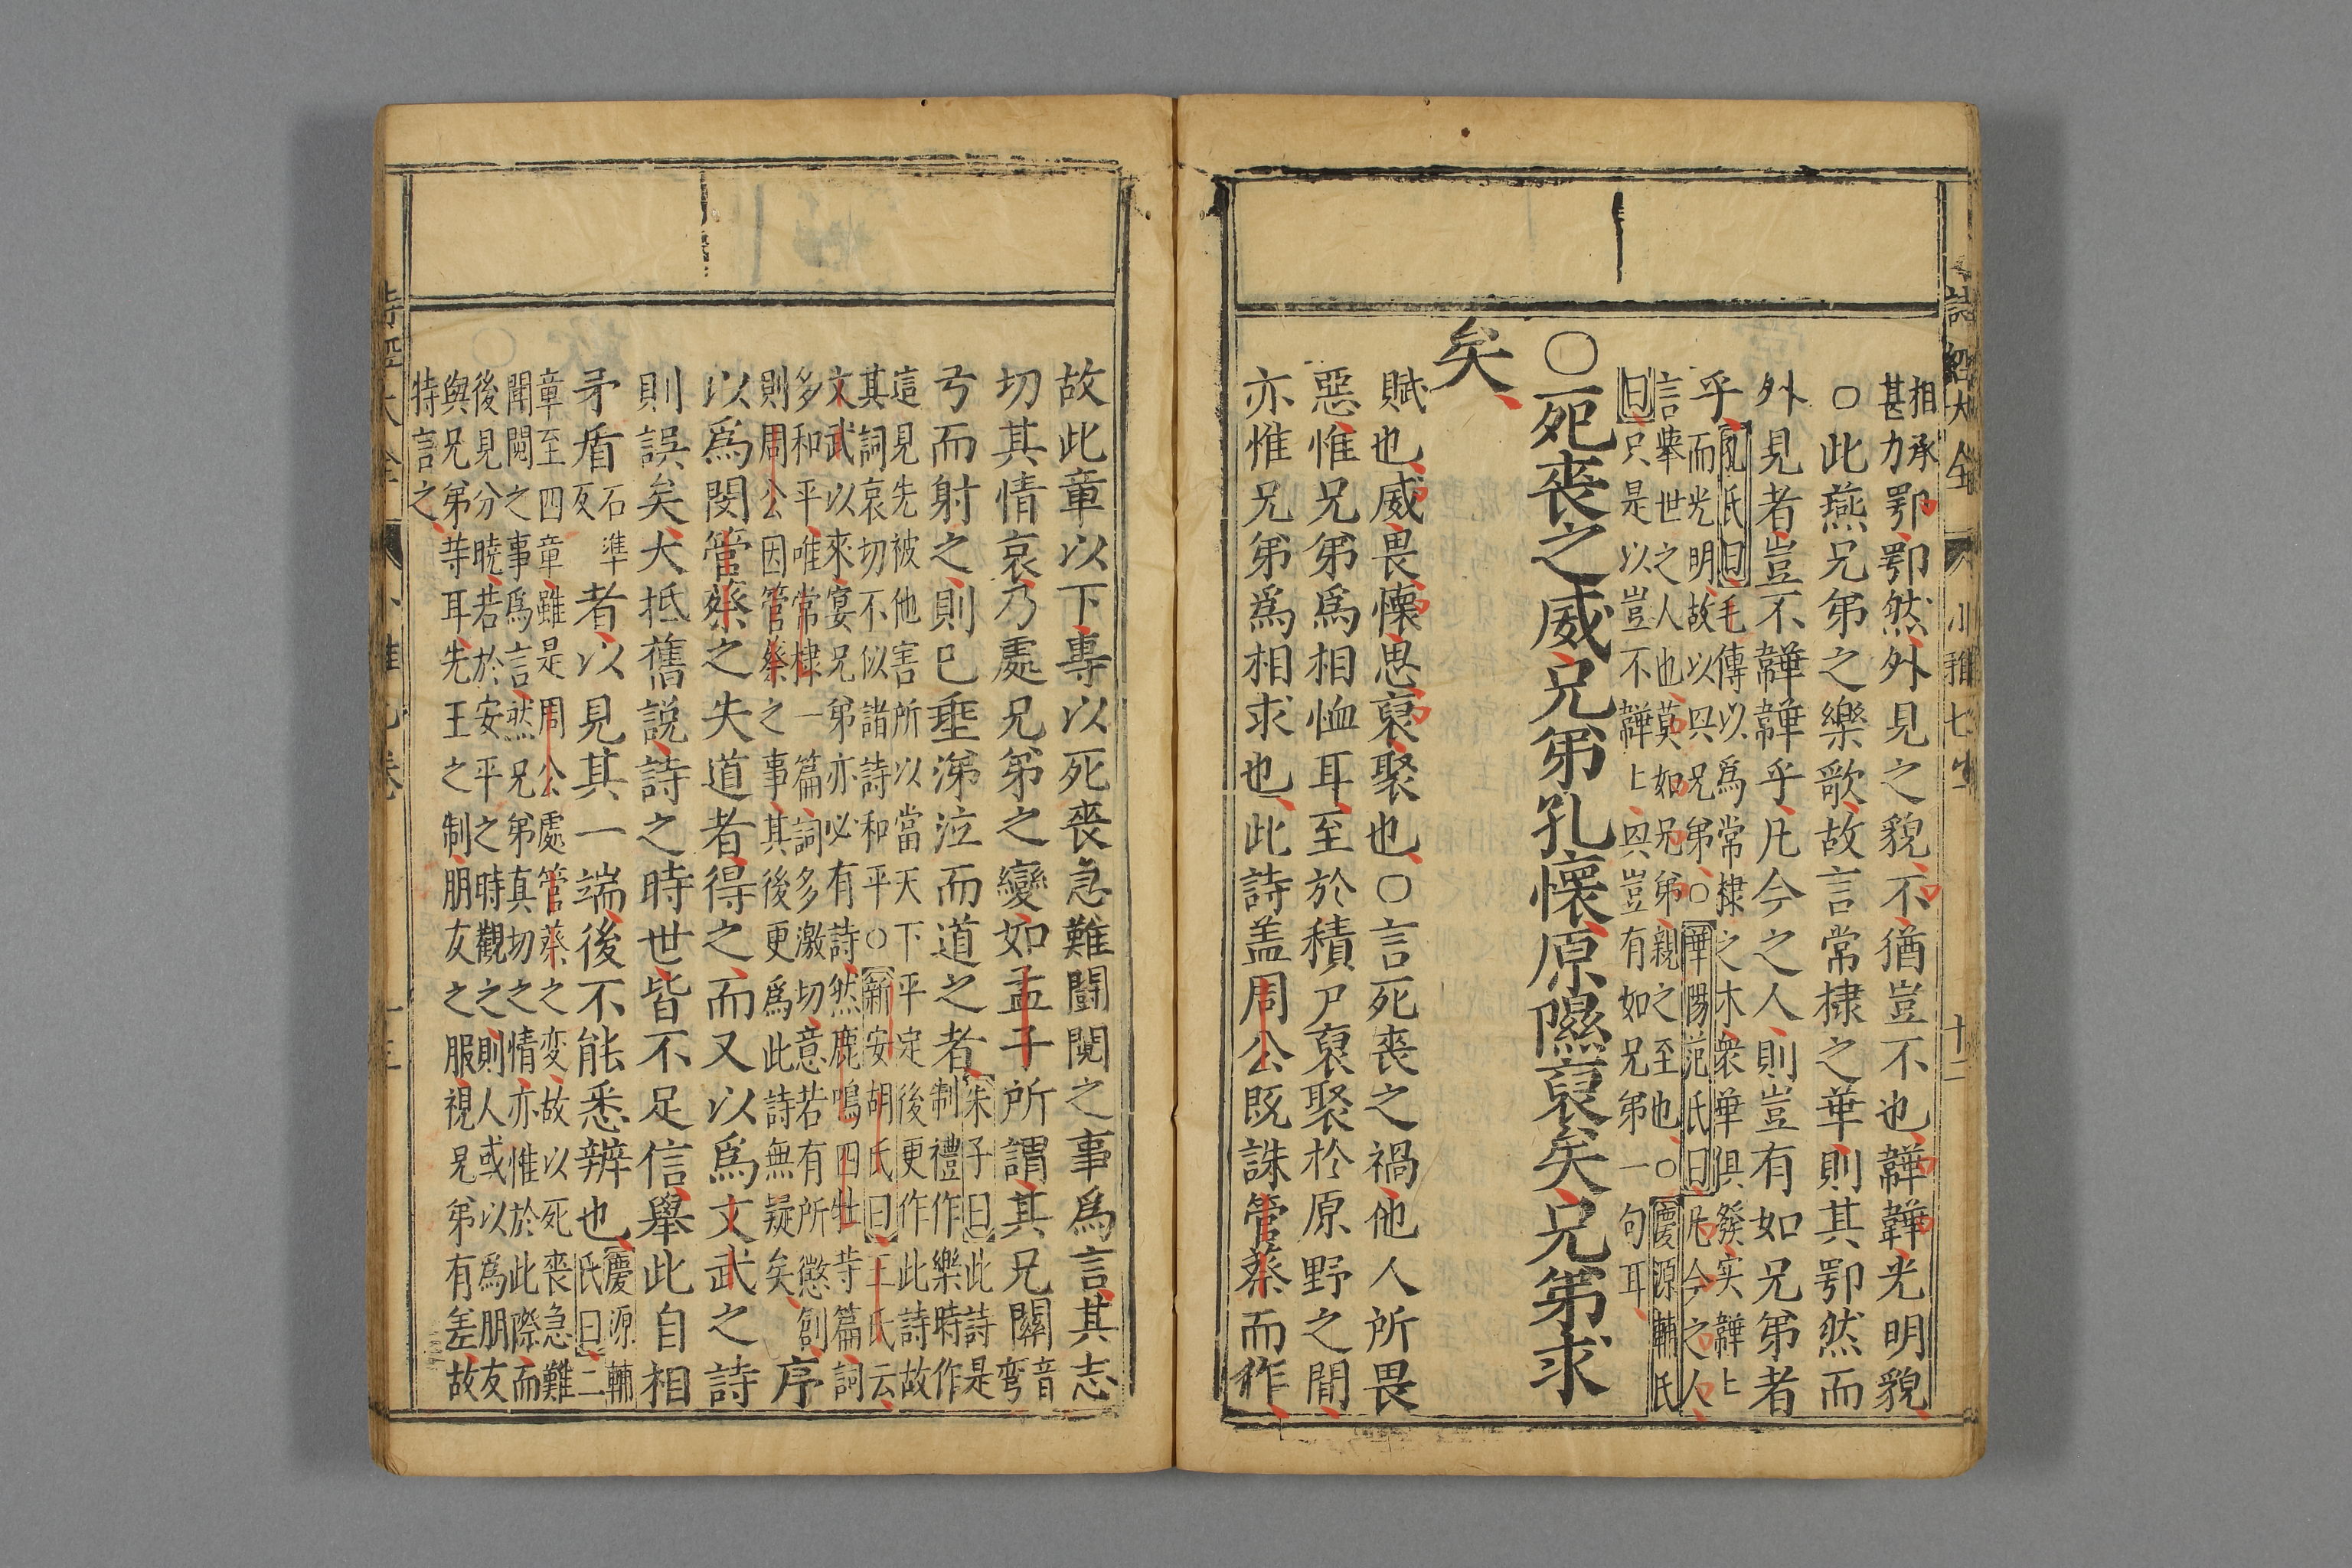 詩經大全 小雅七𠃔 十二
相承甚力鄂鄂然外見之貌不猶豈不也韡韡光明貌
○此燕兄弟之樂歌故言常棣之華則其鄂然而
外見者豈不韡韡乎凡今之人則豈有如兄弟者
乎孔氏曰毛傳以為常棣之木衆華俱發实韡上而光明故以㒷兄弟○華陽范氏曰凡今之人
言舉世之人也莫如兄弟親之至也○慶源輔氏曰只是以豈不韡上㒷豈有如兄弟一句耳
○死喪之威兄弟孔懷原隰裒矣兄弟求
矣
賦也威畏懷思裒聚也○言死喪之禍他人所畏
惡惟兄弟為相恤耳至於積尸裒聚於原野之間
亦惟兄弟為相求也此詩盖周公既誅管蔡而作
故此章以下專以死喪急難鬪䦧之事為言其志
切其情哀乃處兄弟之變如孟子所謂其兄關音弯
弓而射之則已垂涕泣而道之者朱子曰此詩是制禮作樂時作
這見先被他害所以當天下平定後更作此詩故其詞哀切不似諸詩和平○新安胡氏曰王氏云
文武以來宴兄弟亦必有詩然鹿鳴四牡䓁篇詞多和平唯常棣一篇詞多激切意若有所懲創
則周公因管蔡之事其後更為此詩無疑矣序
以為閔管蔡之失道者得之而又以為文武之詩
則誤矣大抵舊説詩之時世皆不足信舉此自相
矛盾石準反者以見其一端後不能悉辨也慶源輔氏曰二
章至四章雖是周公處管蔡之変故以死喪急難鬪䦧之事為言然兄弟真切之情亦惟於此際而
後見分曉若於安平之時觀之則人或以為朋友與兄弟䓁耳先王之制朋友之服視兄弟有差故
特言之